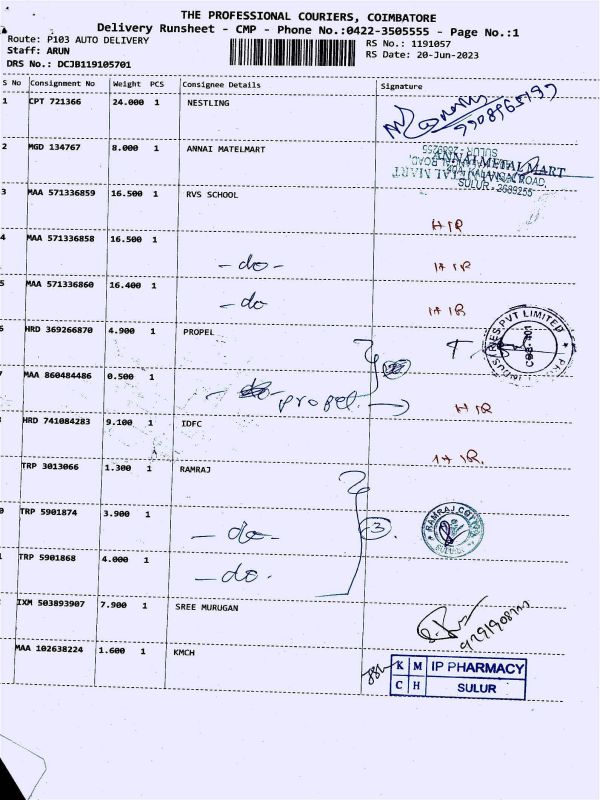 THE PROFESSIONAL COURIERS, COIMBATORE
Delivery Runsheet - CMP - Phone No.:0422-3505555 - Page No.:1
Route: P103 AUTO DELIVERY RS No.: 1191057
Staff: ARUN RS Date: 20-Jun-2023
DRS No.: DCJB119105701
S No Consignment No Weight PCS Consignee Details Signature
1 CPT 721366 24.000 1 NESTLING
2 MGD 134767 8.000 1 ANNAI MATELMART
ANNAI METAL MART
SULUR - 2689255
3 MAA 571336859 16.500 1 RVS SCHOOL
HIR
4 MAA 571336858 16.500 1
- do - HIR
5 MAA 571336860 16.400 1
- do HIR
6 HRD 369266870 4.900 1 PROPEL
7 MAA 860484486 0.500 1
- do - propel. HIR
HRD 741084283 9.100 1 IDFC
HIR.
TRP 3013066 1.300 1 RAMRAJ
0 TRP 5901874 3.900 1
- do - 3. RAMRAJ COTTON SULUR
TRP 5901868 4.000 1
- do.
IXM 503893907 7.900 1 SREE MURUGAN
MAA 102638224 1.600 1 KMCH
K M IP PHARMACY
C H SULUR